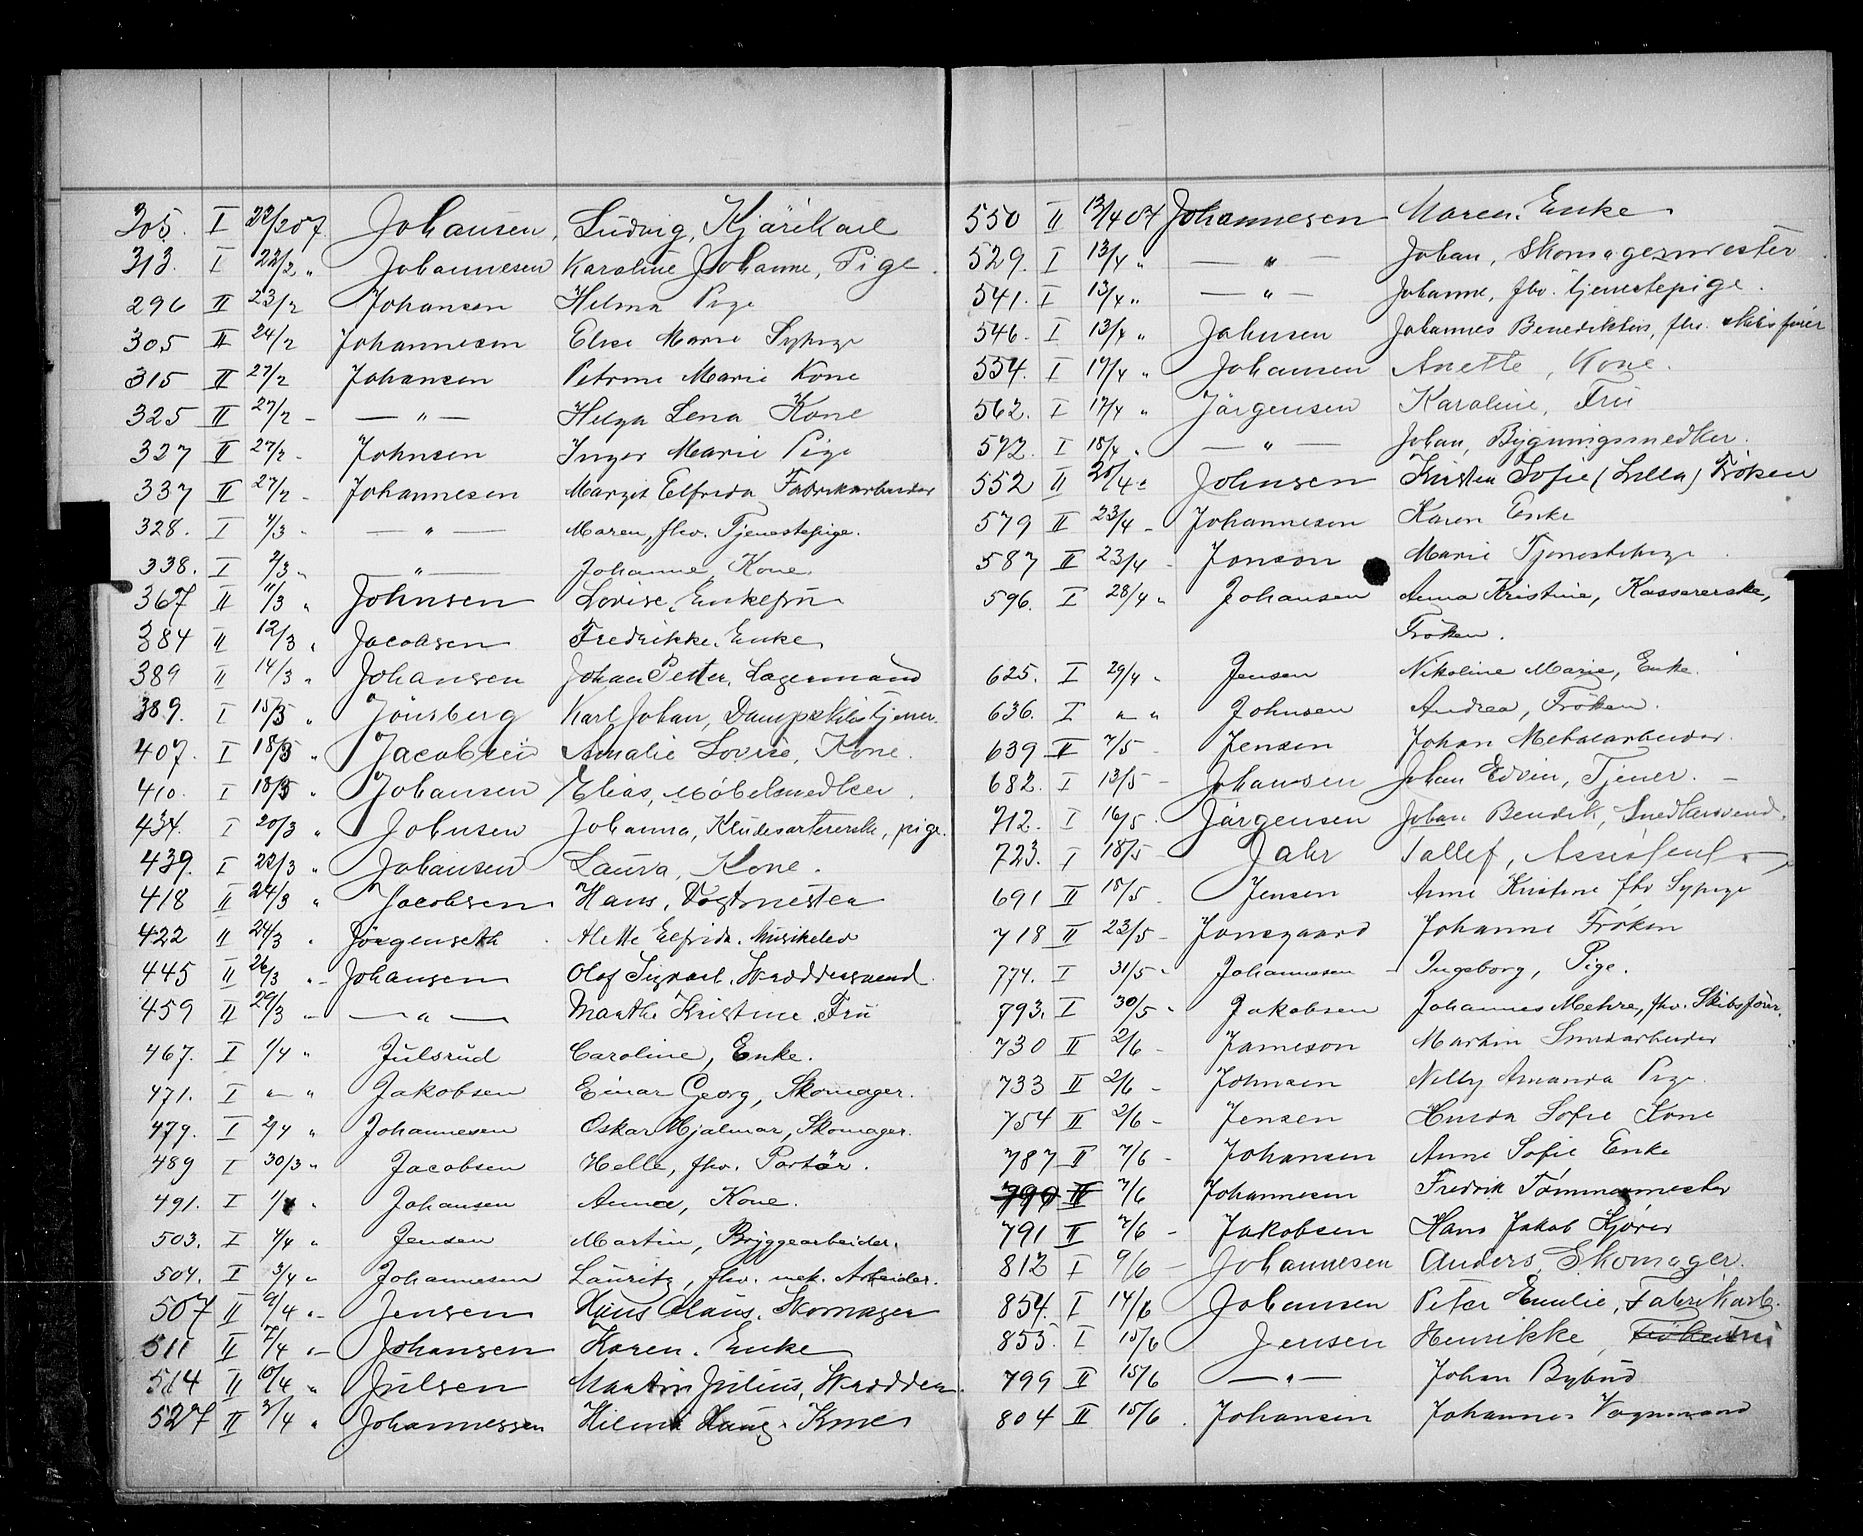 305. I 22/2 07. Johansen, Ludvig, Kjørekarl
313. I 22/2 „ Johannesen Karoline Johanne, Pige.
296 II 23/2 Johansen Helma Pige
305 II 24/2 Johannesen Elise Marie Sypige
315 II 27/2 Johansen Petrine Marie Kone
325 II 27/2 – — „ — Helga Lena Kone
327 II 27/2 - Johnsen Inger Marie Pige
337 II 27/2 - Johannesen Margit Elfrida Fabrikarbeider
328. I 1/3 - — „ — Maren, fhv. Tjenestepige.
338. I 2/3 „ „ — Johanne Kone.
367 II 11/3 „ Johnsen Lovise, Enkefru
384 II 12/3 „ Jacobsen Fredrikke, Enke
389 II 14/3 „ Johansen Johan Petter, Lagermand
389. I 15/3 „ Jönsberg Karl Johan, Dampskibstjener.
407. I 18/3 „ Jacobsen Amalie Lovise, Kone.
410. I 18/3 „ Johansen Elias, Møbelsnedker.
434. I 20/3 „ Johnsen Johanna, Kludesortererske, pige.
439. I 22/3 „ Johansen Laura, Kone.
418 II 24/3 „ Jacobsen Hans, Vogtmester
422 II 24/3 „ Jörgenseth Alette Elfrida. Musikelev
445 II 26/3 „- Johansen Olaf Sigvart. Skræddersvend.
459 II 29/3 – — „ — Marthe Kristine. Fru
467. I 1/4 „ Julsrud Caroline, Enke.
471. I „ „ Jakobsen Einar Georg, Skomager.
479. I 2/4 „ Johannesen Oskar Hjalmar, Skomager.
489 I 30/3 „ Jacobsen Helle, fhv. Portør.
491. I 1/4 „ Johansen Anna, Kone.
503. I 4/4 „ Jensen Martin, Bryggearbeider.
504. I 3/4 „ Johannesen Lauritz, fhv. mek. Arbeider.
507 II 9/4 „- Jensen Hans Claus. Skomager
511 II 7/4 „- Johansen Karen. Enke
514 II 10/4 „ Julsen Martin Julius, Skrædder.
527 II /4 „ Johannessen Hilma Haug. Kone
550 II 13/4 07 Johannesen Maren. Enke
529. I 13/4 „ — „ — Johan, Skomagermester.
541. I 13/4 „ — „ — Johanne, fhv. tjenestepige.
546. I 13/4 „ Johnsen Johannes Benediktus, fhv. skibsfører
554. I 17/4 „ Johansen Anette, Kone.
562. I 17/4 „ Jørgensen Karoline, Fru
572. I 18/4 „ — „ — Johan, Bygningssnedker.
552 II 20/4 „ Johnsen Kristen Sofie (Lilla) Frøken
579 II 23/4 - Johannesen Karen Enke
587 II 23/4 - Jonson Marie Tjenestepige
596. I 28/4 „ Johansen Anna Kristine, Kassererske,
Frøken.
625. I 29/4 „ Jensen Nikoline Marie, Enke.
636. I „ „ Johnsen Andrea, Frøken.
639 II 7/5 - Jensen Johan Metalarbeider.
682. I 13/5 - Johansen Johan Edvin, Tjener. –
712. I 16/5. Jørgensen Johan Bendik, Snedkersvend.
723. I 18/5 - Jahr Tallef, Assistent.
691 II 18/5. Jensen Anne Kristine fhv Sypige
718 II 23/5 - Jonsgaard Johanne Frøken
774. I 31/5 - Johannesen - Ingeborg, Pige.
793. I 30/5 „ Jakobsen Johannes Mehre, fhv. Skibsfører.
730 II 2/6 - Jameson Martin Smedarbeider
733 II 2/6 - Johnsen Nelly Amanda Pige
754 II 2/6 - Jensen Hulda Sofie Kone
787 II 7/6 - Johansen Anne Sofie Enke
790 II 7/6 Johannesen Fredrik Tømmermester
791 II 7/6 - Jakobsen Hans Jakob Kjører
812 I 9/6 - Johannesen Anders, Skomager.
854. I 14/6 Johansen Peter Emilie, Fabrikarb.
855. I 15/6 Jensen Henrikke, Frøken Fru
799 II 15/6 — „ — Johan Bybud
804 II 15/6. Johansen Johannes Vognmand